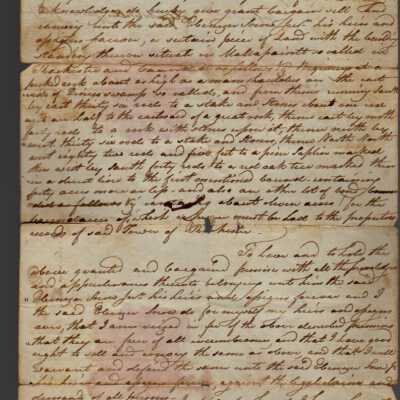 acknowledge, do hereby give grant bargain sell and
convey unto the said Ebenezer his heirs and
assigns forever, a certain piece of Land with the
standing thereon situate in Mattapoisett so called in
Rochester and bounded as follows, viz Beginning at a
rock about as high as a mans shoulders in the east
side of swamp so called, and from thence running South
by east thirty six rods to a stake and stones about one rod
and an half to the eastward of a great rock, thence east by north
rods to a rock with stones upon it, thence north by
west thirty six rods to a stake and stones, thence North
west eighty two rods and five feet to a pine sapling marked
then west by south forty rods to a oak tree marked then
in a direct line to the first mentioned bound containing
forty acres more or less and also an other lot of land
as follows by about eleven acres for the
boundaries of which reference must be had to the proprietors
records of said Town of Rochester
To have and to hold the
above granted and bargained premises with all the privileges
and appurtenances thereto belonging unto him the said
Ebenezer his heirs and assigns forever and I
the said Ebenezer do for myself my heirs and assigns
that I am seized in fee of the above described premises
that they are free of all incumbrances and that I have good
right to sell and convey the same as above and that I will
warrant and defend the same unto the said Ebenezer
his heirs and assigns forever against the legal claims and
demand of all persons